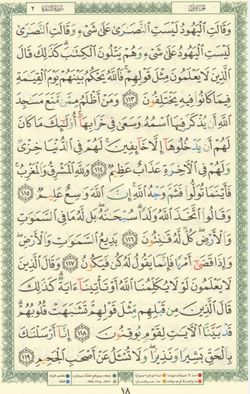 وَقَالَتِ ٱلۡيَهُودُ لَيۡسَتِ ٱلنَّصَٰرَىٰ عَلَىٰ شَيۡءٖ وَقَالَتِ ٱلنَّصَٰرَىٰ
لَيۡسَتِ ٱلۡيَهُودُ عَلَىٰ شَيۡءٖ وَهُمۡ يَتۡلُونَ ٱلۡكِتَٰبَۗ كَذَٰلِكَ قَالَ
ٱلَّذِينَ لَا يَعۡلَمُونَ مِثۡلَ قَوۡلِهِمۡۚ فَٱللَّهُ يَحۡكُمُ بَيۡنَهُمۡ يَوۡمَ ٱلۡقِيَٰمَةِ
فِيمَا كَانُواْ فِيهِ يَخۡتَلِفُونَ ١١٣ وَمَنۡ أَظۡلَمُ مِمَّن مَّنَعَ مَسَٰجِدَ
ٱللَّهِ أَن يُذۡكَرَ فِيهَا ٱسۡمُهُۥ وَسَعَىٰ فِي خَرَابِهَآۚ أُوْلَٰٓئِكَ مَا كَانَ
لَهُمۡ أَن يَدۡخُلُوهَآ إِلَّا خَآئِفِينَۚ لَهُمۡ فِي ٱلدُّنۡيَا خِزۡيٞ
وَلَهُمۡ فِي ٱلۡأٓخِرَةِ عَذَابٌ عَظِيمٞ ١١٤ وَلِلَّهِ ٱلۡمَشۡرِقُ وَٱلۡمَغۡرِبُۚ
فَأَيۡنَمَا تُوَلُّواْ فَثَمَّ وَجۡهُ ٱللَّهِۚ إِنَّ ٱللَّهَ وَٰسِعٌ عَلِيمٞ ١١٥
وَقَالُواْ ٱتَّخَذَ ٱللَّهُ وَلَدٗاۗ سُبۡحَٰنَهُۥۖ بَل لَّهُۥ مَا فِي ٱلسَّمَٰوَٰتِ
وَٱلۡأَرۡضِۖ كُلّٞ لَّهُۥ قَٰنِتُونَ ١١٦ بَدِيعُ ٱلسَّمَٰوَٰتِ وَٱلۡأَرۡضِۖ
وَإِذَا قَضَىٰٓ أَمۡرٗا فَإِنَّمَا يَقُولُ لَهُۥ كُن فَيَكُونُ ١١٧ وَقَالَ ٱلَّذِينَ
لَا يَعۡلَمُونَ لَوۡلَا يُكَلِّمُنَا ٱللَّهُ أَوۡ تَأۡتِينَآ ءَايَةٞۗ كَذَٰلِكَ
قَالَ ٱلَّذِينَ مِن قَبۡلِهِم مِّثۡلَ قَوۡلِهِمۡۘ تَشَٰبَهَتۡ قُلُوبُهُمۡۗ
قَدۡ بَيَّنَّا ٱلۡأٓيَٰتِ لِقَوۡمٖ يُوقِنُونَ ١١٨ إِنَّآ أَرۡسَلۡنَٰكَ
بِٱلۡحَقِّ بَشِيرٗا وَنَذِيرٗاۖ وَلَا تُسۡـَٔلُ عَنۡ أَصۡحَٰبِ ٱلۡجَحِيمِ ١١٩
١٨